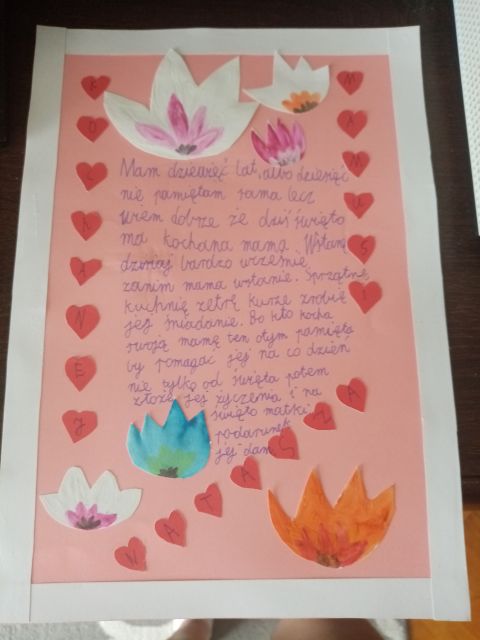 K
O
C
H
A
N
E
J
M
A
M
U
S
I
Mam dziewięć lat, albo dziesięć
nie pamiętam sama lecz
wiem dobrze że dziś święto
ma kochana mama. Wstanę
dzisiaj bardzo wcześnie
zanim mama wstanie. Sprzątnę
kuchnię zetrę kurze zrobię
jej śniadanie. Bo kto kocha
swoją mamę ten otym pamięta
by pomagać jej na co dzień
nie tylko od święta potem
złożę jej życzenia i na
święto matki
podarunek
jej dam
N
A
T
A
S
Z
A